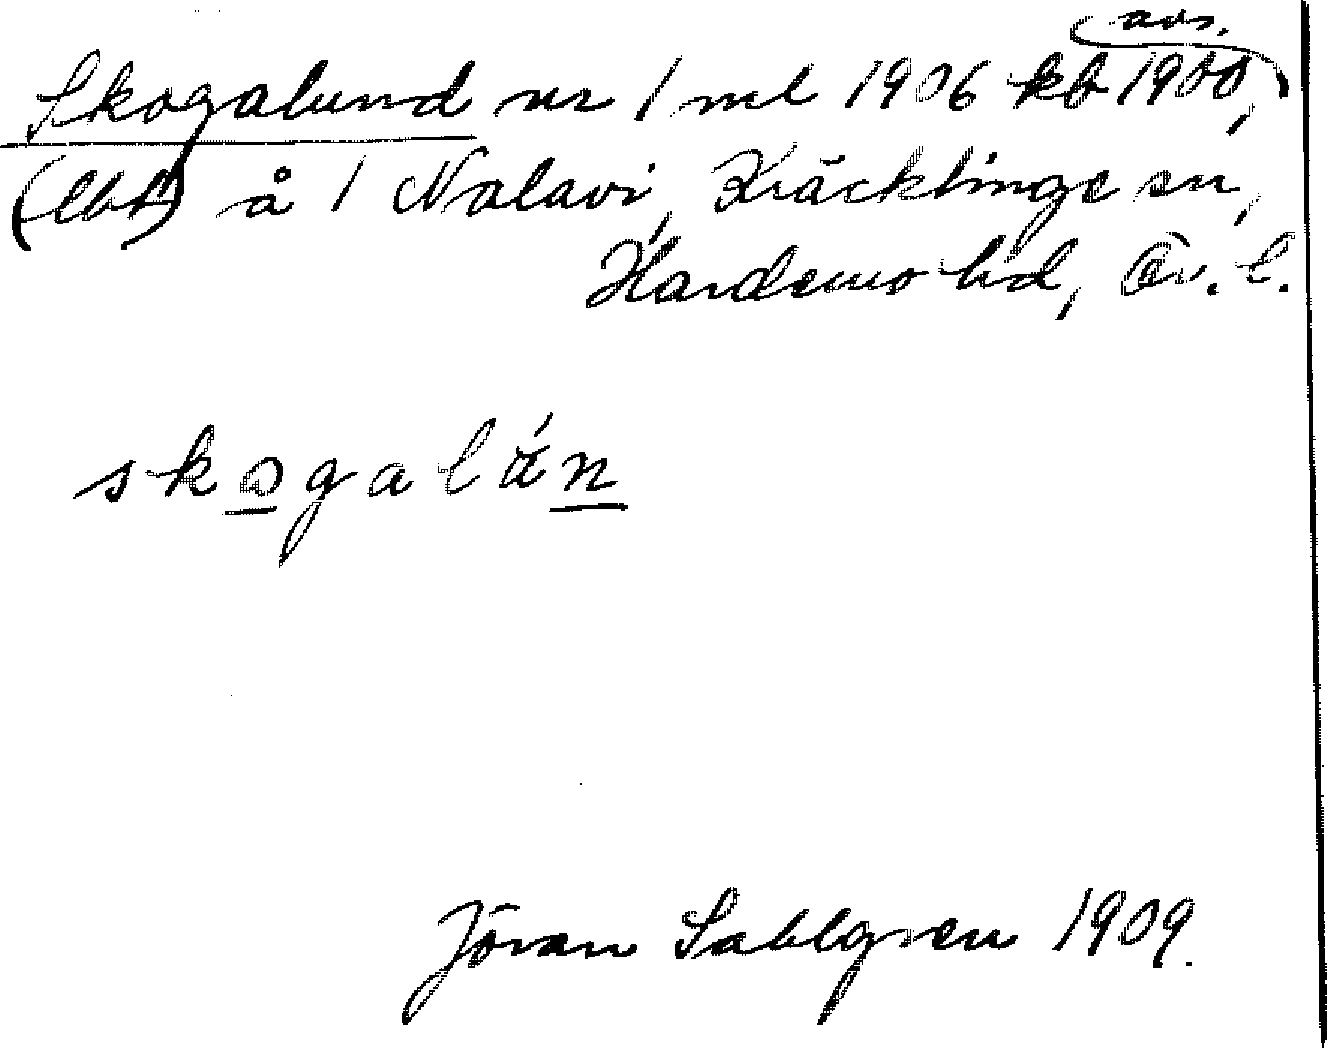 avs.
Skogalund nr 1 ml 1906 kb 1900,
(lht) å 1 Nalavi, Kräcklinge sn,
Hardemo hd, Ör. l.
skogalán
Jöran Sahlgren 1909.